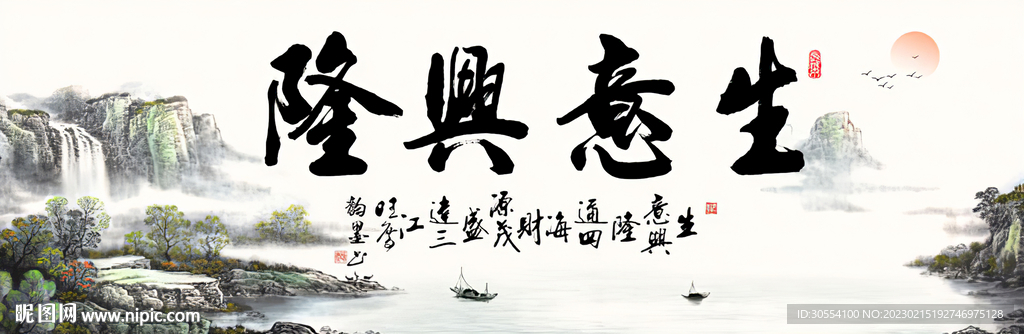 生意興隆
生意興隆通四海財源茂盛達三江
昵图网 www.nipic.com
ID:30554100 NO:20230215192746975128